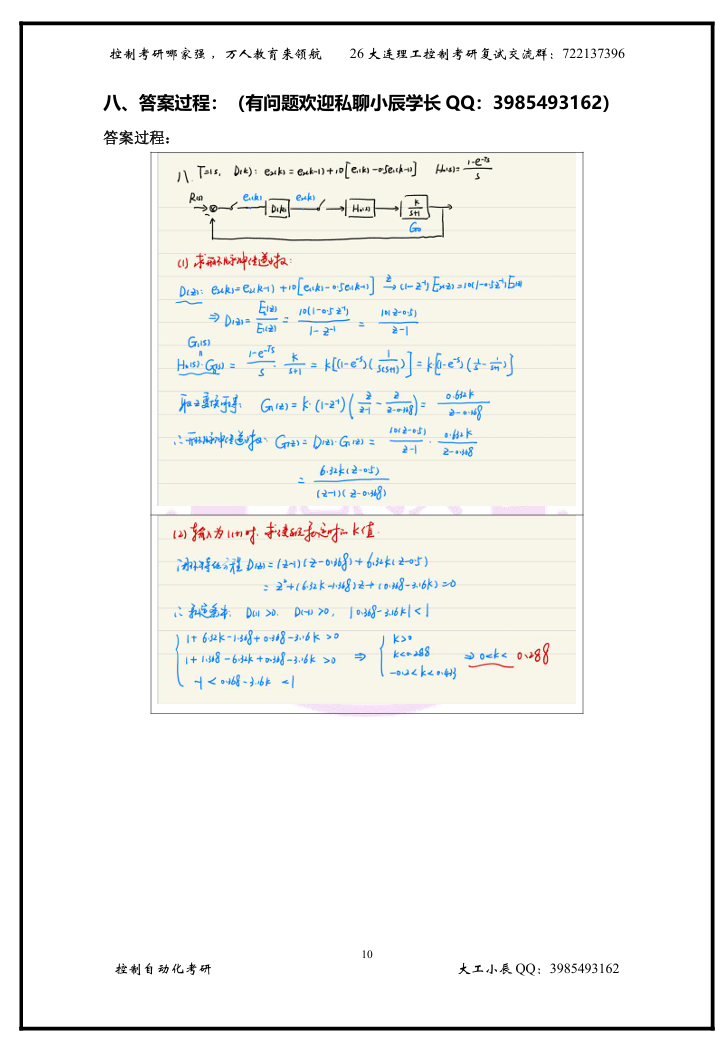 控制考研哪家强，万人教育来领航 26 大连理工控制考研复试交流群：722137396
八、答案过程：（有问题欢迎私聊小辰学长 QQ：3985493162）
答案过程：
八 T=1s, D(k): e₂(k)=e₂(k-1)+10[e₁(k)-0.5e₁(k-1)] Hₒ(s)=(1-e^-Ts)/s
R(s) e₁(k) D(k) e₂(k) Hₒ(s) k/(s+1)
G₀
(1) 求开环脉冲传递函数:
D(z): e₂(k)=e₂(k-1)+10[e₁(k)-0.5e₁(k-1)] →z (1-z⁻¹)E₂(z)=10(1-0.5z⁻¹)E₁(z)
⇒ D(z)= E₂(z)/E₁(z) = 10(1-0.5z⁻¹)/(1-z⁻¹) = 10(z-0.5)/(z-1)
G₁(s)
Hₒ(s)·G₀(s) = (1-e^-Ts)/s · k/(s+1) = k[(1-e^-s)(1/(s(s+1)))] = k[(1-e^-s)(1/s - 1/(s+1))]
取z变换可得: G₁(z)=k·(1-z⁻¹)(z/(z-1) - z/(z-0.368))= 0.632k/(z-0.368)
∴开环脉冲传递函数: G(z)= D(z)·G₁(z) = 10(z-0.5)/(z-1) · 0.632k/(z-0.368)
= 6.32k(z-0.5)/((z-1)(z-0.368))
(2) 输入为1(t)时. 求使系统稳定时的k值.
闭环特征方程 D(z)=(z-1)(z-0.368)+6.32k(z-0.5)
= z²+(6.32k-1.368)z+(0.368-3.16k)=0
∴ 稳定要求: D(1)>0. D(-1)>0, |0.368-3.16k|<1
1+6.32k-1.368+0.368-3.16k>0 k>0
1+1.368-6.32k+0.368-3.16k>0 ⇒ k<0.288 ⇒ 0<k<0.288
-1<0.368-3.16k<1 -0.2<k<0.433
10
控制自动化考研 大工小辰 QQ：3985493162